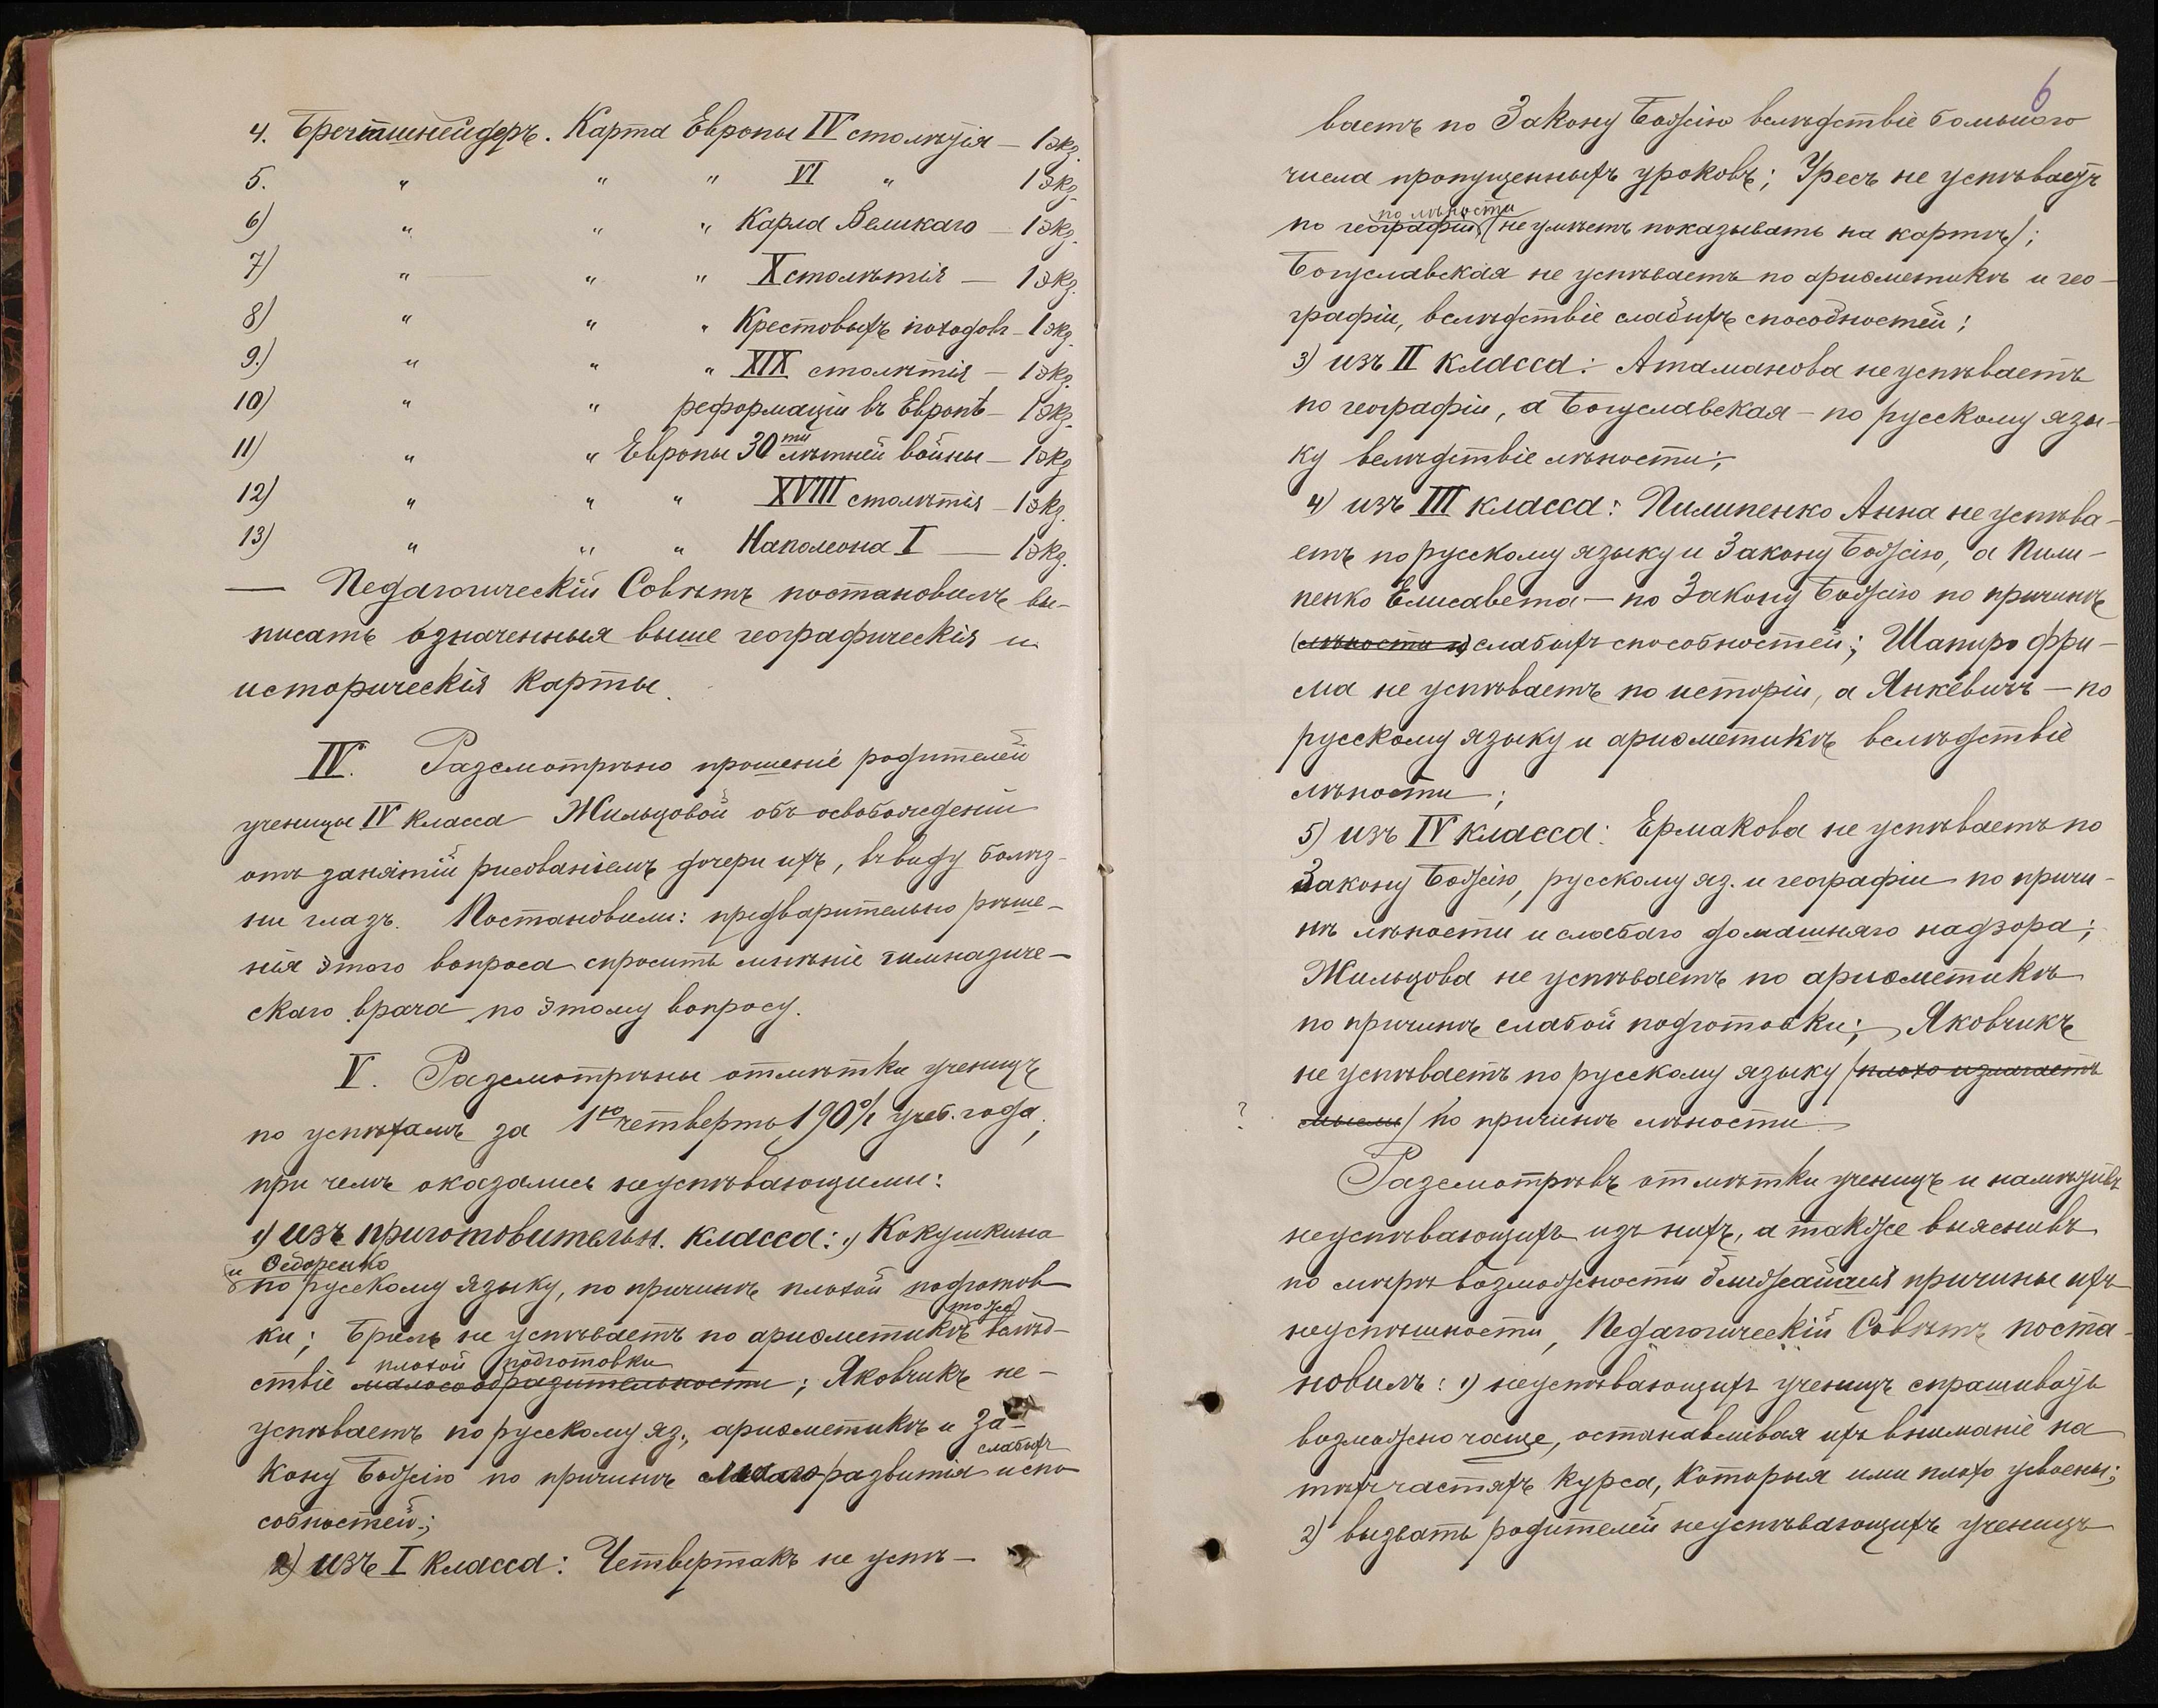 4. Бретшнейдеръ. Карта Европы IV столѣтія — 1 экз.
5. " " " VI " 1 экз.
6) " " " Карла Великаго — 1 экз.
7) " " " X столѣтія — 1 экз.
8) " " " Крестовыхъ походовъ — 1 экз.
9.) " " " XIX столѣтія — 1 экз.
10) " " реформаціи въ Европѣ — 1 экз.
11) " " Европы 30ти лѣтней войны — 1 экз.
12) " " " XVIII столѣтія — 1 экз.
13) " " " Наполеона I — 1 экз.
— Педагогическій Совѣтъ постановилъ вы-
писать означенныя выше географическія и
историческія карты.
IV. Разсмотрѣно прошеніе родителей
ученицы IV класса Жильцовой объ освобожденіи
отъ занятій рисованіемъ дочери ихъ, въ виду болѣз-
ни глазъ. Постановили: предварительно рѣше-
нія этого вопроса спросить мнѣніе гимназиче-
скаго врача по этому вопросу.
V. Разсмотрѣны отмѣтки ученицъ
по успѣхамъ за 1ю четверть 190 0/1 учеб. года,
при чемъ оказались неуспѣвающими:
1) изъ приготовительн. класса: 1) Кокушкина
и Ѳедоренко
по русскому языку, по причинѣ плохой подготов-
ки; Бриль не успѣваетъ по ариѳметикѣ тоже вслѣд-
плохой подготовки
ствіе малосообразительности; Яковчикъ не-
успѣваетъ по русскому яз., ариѳметикѣ и За-
кону Божію по причинѣ развитія слабыхъ и спо-
собностей;
2) изъ I класса: Четвертакъ не успѣ-
6
ваетъ по Закону Божію вслѣдствіе большого
числа пропущенныхъ уроковъ; Уресъ не успѣваетъ
по лѣности
по географіи (не умѣетъ показывать на картѣ);
Богуславская не успѣваетъ по ариѳметикѣ и гео-
графіи, вслѣдствіе слабыхъ способностей;
3) изъ II класса: Атаманова не успѣваетъ
по географіи, а Богуславская — по русскому язы-
ку вслѣдствіе лѣности;
4) изъ III класса: Пилипенко Анна не успѣва-
етъ по русскому языку и Закону Божію, а Пили-
пенко Елисавета — по Закону Божію по причинѣ
(лѣности и) слабыхъ способностей; Шапиро Фри-
ма не успѣваетъ по исторіи, а Янкевичъ — по
русскому языку и ариѳметикѣ вслѣдствіе
лѣности;
5) изъ IV класса: Ермакова не успѣваетъ по
Закону Божію, русскому яз. и географіи по причи-
нѣ лѣности и слабаго домашняго надзора;
Жильцова не успѣваетъ по ариѳметикѣ
по причинѣ слабой подготовки; Яковчикъ
не успѣваетъ по русскому языку (плохо излагаетъ
? мысли) по причинѣ лѣности
Разсмотрѣвъ отмѣтки ученицъ и намѣтивъ
неуспѣвающихъ изъ нихъ, а также выяснивъ
по мѣрѣ возможности ближайшія причины ихъ
неуспѣшности, Педагогическій Совѣтъ поста-
новилъ: 1) неуспѣвающихъ ученицъ спрашивать
возможно чаще, останавливая ихъ вниманіе на
тѣхъ частяхъ курса, которыя ими плохо усвоены;
2) вызвать родителей неуспѣвающихъ ученицъ